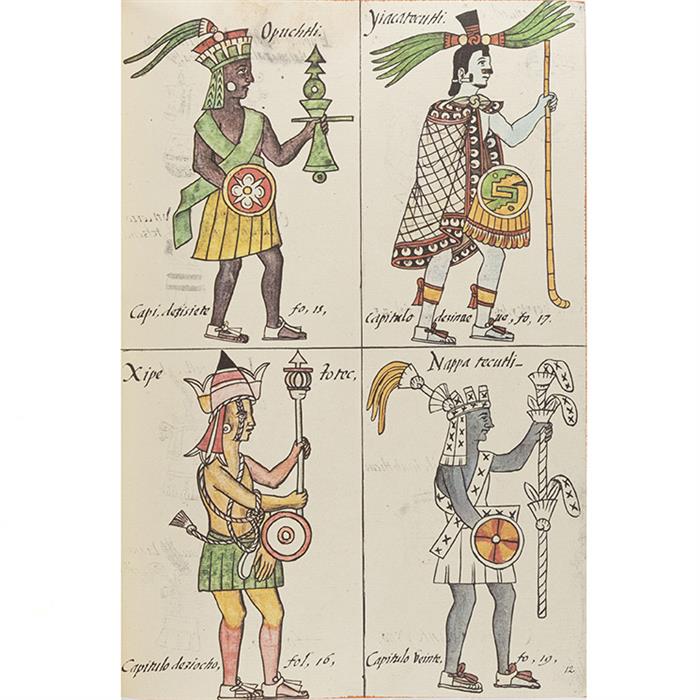 Opuchtli.
Capi, desisiete fo, 15,
Yiacatecutli.
Capitulo dezinue ue, fo, 17.
Xipe totec,
Capitulo deziocho, fol, 16,
Nappa tecutli_
Capitulo Veinte. fo, 19,
12.